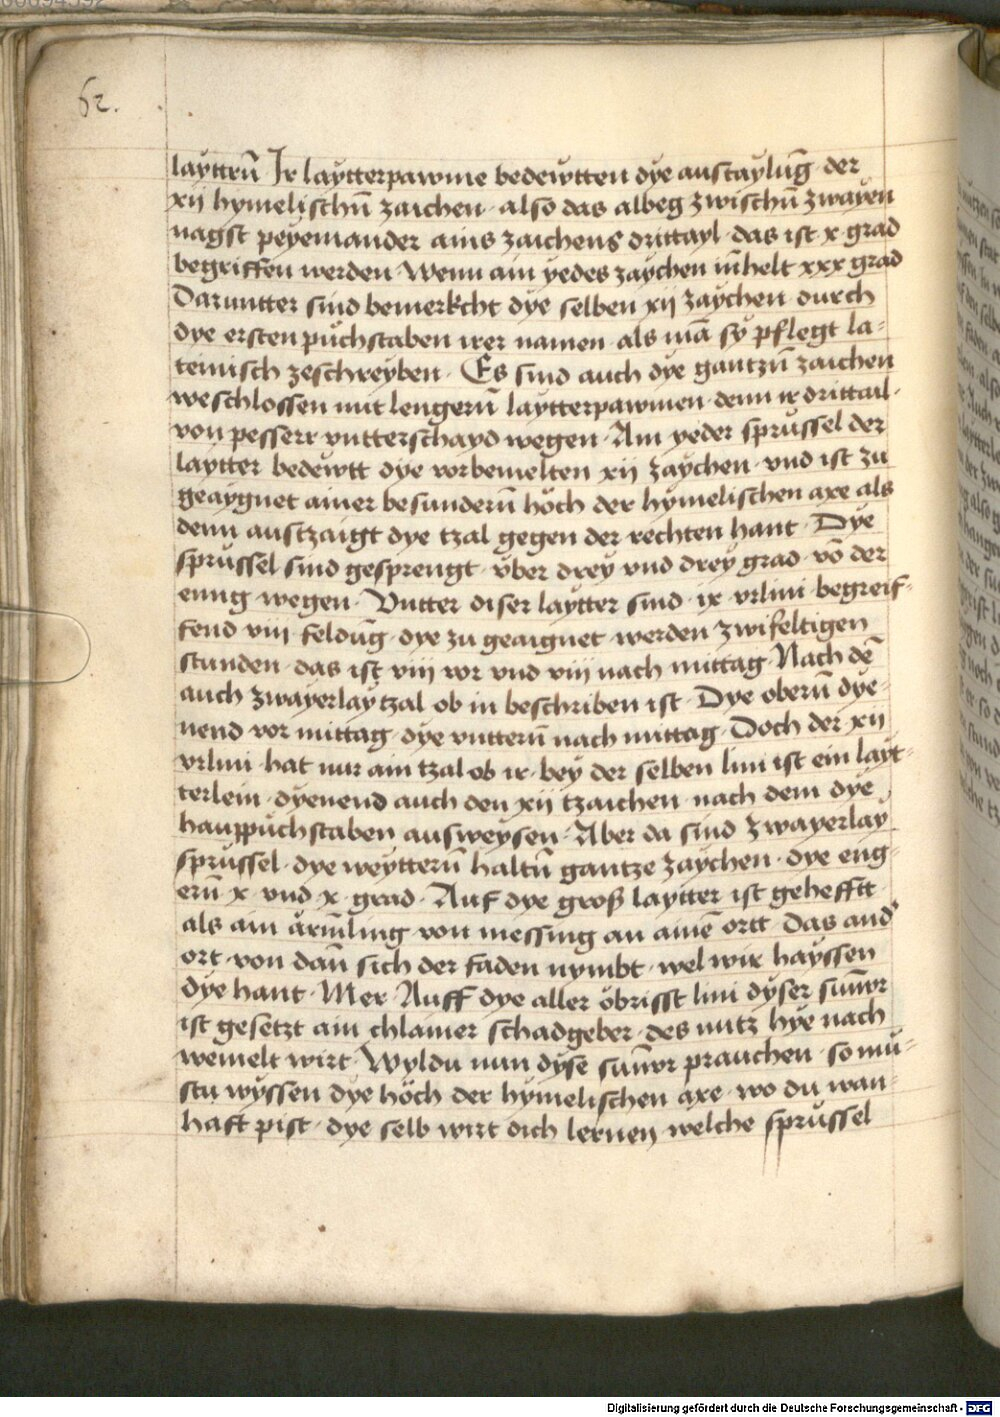 62.
layttrn̄ Ir laytterpawme bedewtten dye austaylūg der
xij hymelischn̄ zaichen · also das albeg zwischn̄ zwayen
nagst peyeinander ains zaichens drittayl · das ist x grad
begriffen werden · Wenn ain yedes zaychen in̄helt xxx grad
Daruntter sind bemerkcht dye selben xij zaychen durch
dye ersten půchstaben irer namen · als mā sy pflegt la=
teinisch zeschreyben · Es sind auch dye gantzn̄ zaichen
weschlossen mit lengern̄ laytterpawmen · denn ir drittail ·
von pesserr vntterschayd wegen · Ain yeder sprussel der
laytter bedewtt dye vorbemelten xij zaychen · vnd ist zu
geaygnet ainer besundern̄ höch der hymelischen axe als
denn austzaigt dye tzal gegen der rechten hant · Dye
sprüssel sind gesprengt · vber drey vnd drey grad · vō der
enng wegen · Vntter diser laytter sind · ix vrlini · begreif=
fend viii feldūg · dye zu geaignet werden zwifeltigen
stunden · das ist viii vor vnd viii nach mittag · Nach dē
auch zwayerlay tzal ob in beschriben ist · Dye obern̄ dye=
nend vor mittag · dye vnttern̄ nach mittag · Doch der xij
vrlini · hat nur ain tzal ob ir · bey der selben lini ist ein layt=
terlein · dyenend auch den xij tzaichen · nach dem dye
haupp̊uchstaben ausweysen · Aber da sind zwayerlay
sprüssel · dye weyttern̄ haltn̄ gantze zaychen · dye eng=
ern̄ x · vnd x · grad · Auf dye groß laytter ist gehefftt
als ain ärm̄ling von messing an ainē ortt · Das and'
ort · von dan̄ sich der faden nymbt · wel wir hayssen
dye hant · Mer · Auff dye aller öbrisst lini dyser sun̄vr
ist gesetzt ain chlainer schadgeber · des nutz hye nach
wemelt wirt · Wyldu nun dyse sun̄vr prauchen · so mu=
stu wyssen dye höch der hymelischen axe · wo du wan=
haft pist · dye selb wirt dich lernen welche sprüssel
Digitalisierung gefördert durch die Deutsche Forschungsgemeinschaft - DFG